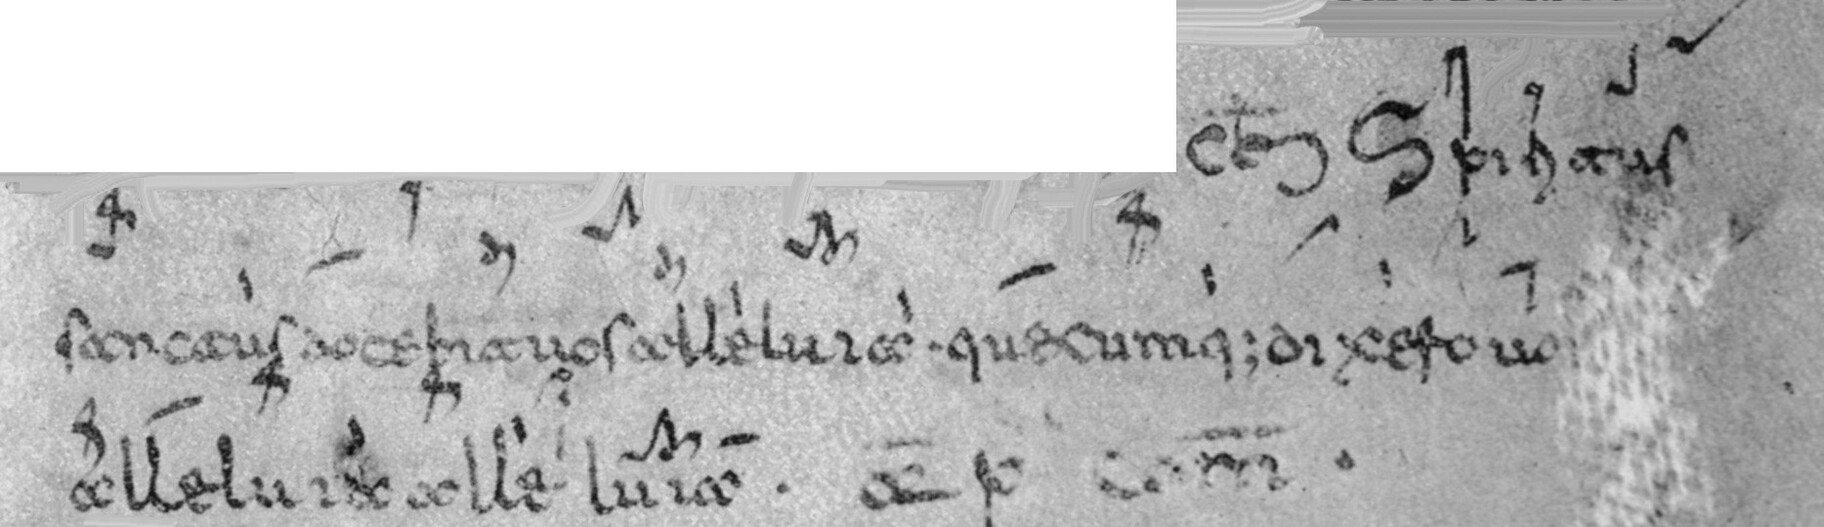 Spiritus
sanctus docebit uos alleluia · quecumq; dixero uo
alleluia alleluia ·